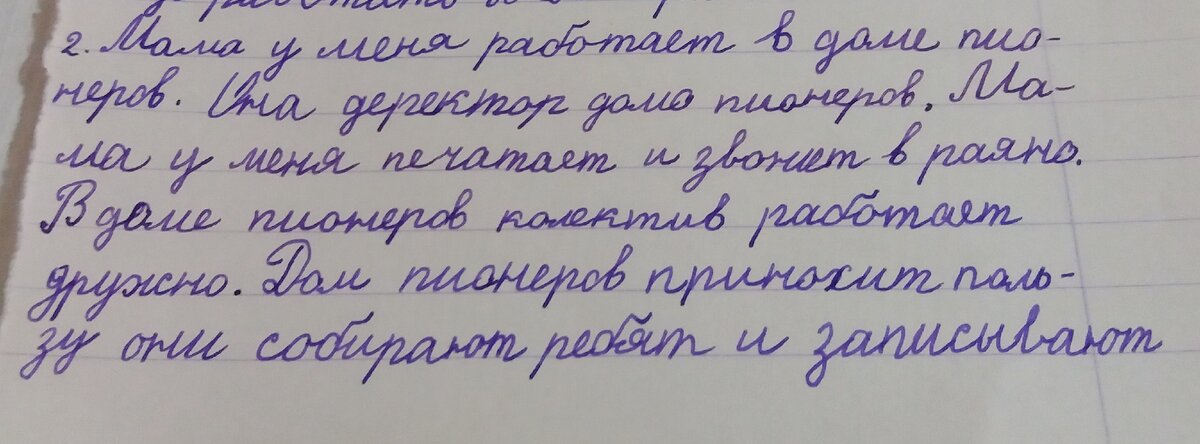 2. Мама у меня работает в доме пио-
неров. Она деректор дома пионеров. Ма-
ма у меня печатает и звонит в раяно.
В доме пионеров колектив работает
дружно. Дом пионеров приносит поль-
зу они собирают ребят и записывают